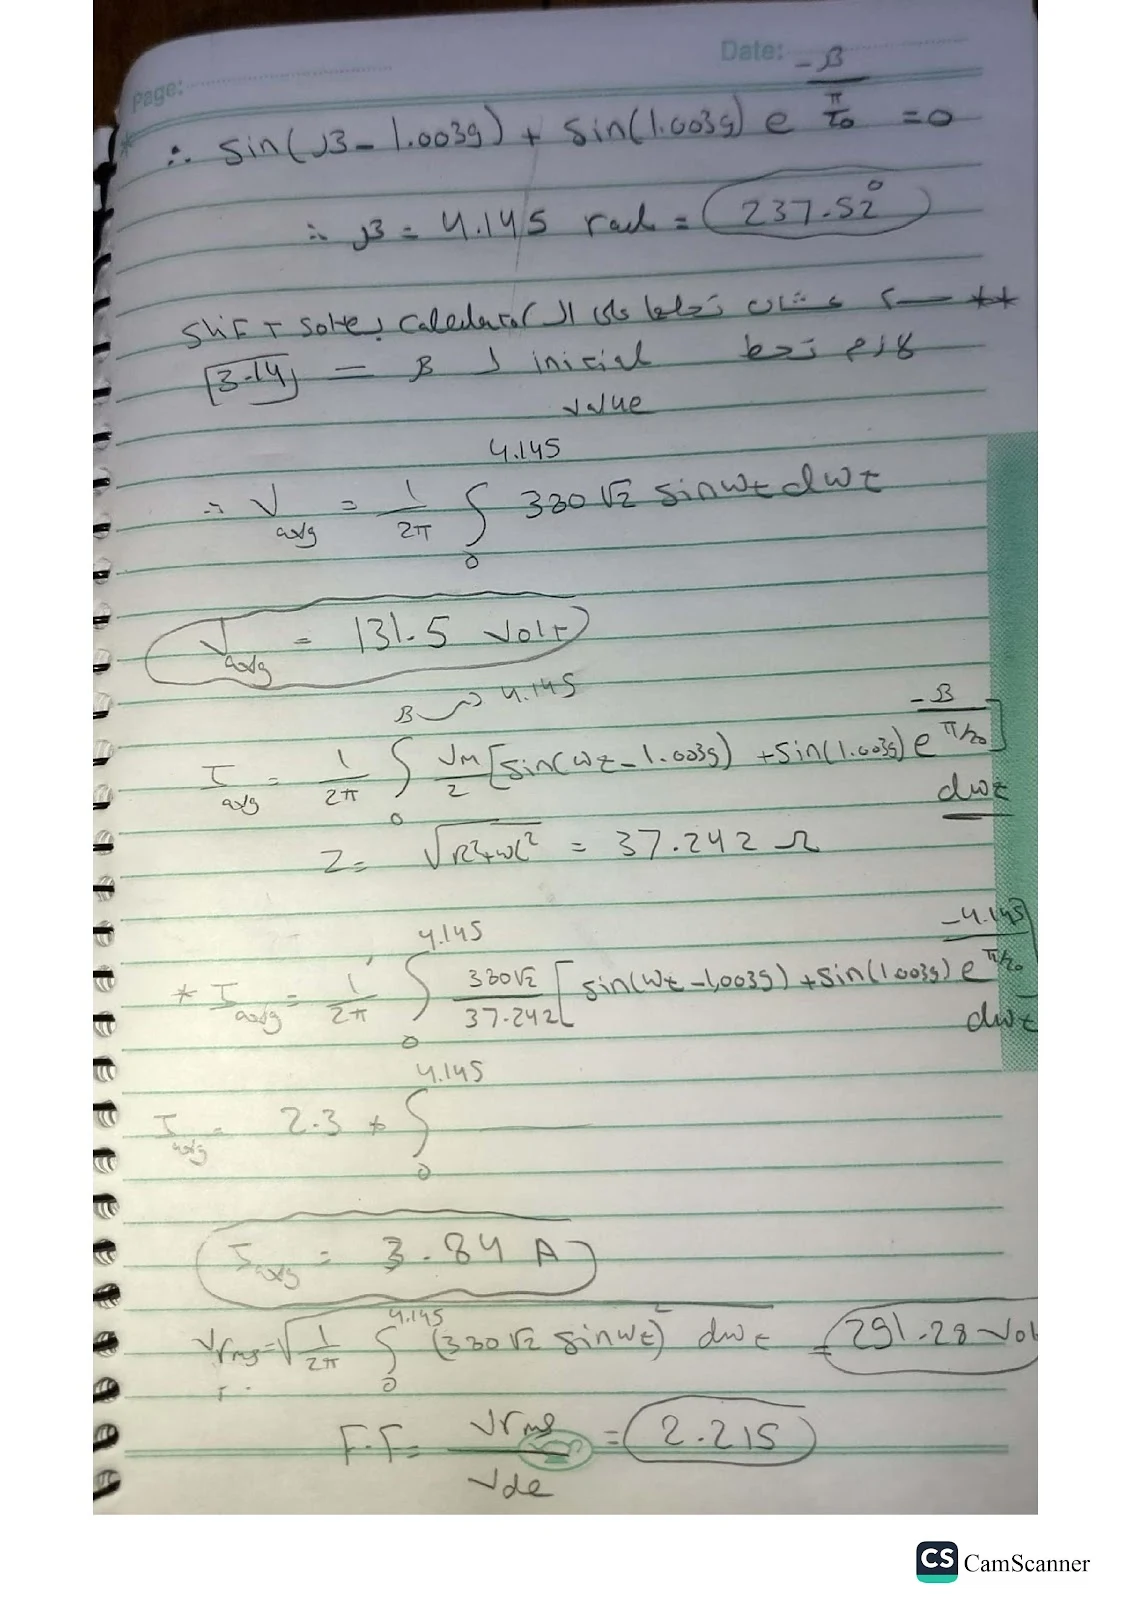 Date:
Page:
∴ sin(β - 1.0039) + sin(1.0039) e^(-β / (π/20)) = 0
∴ β = 4.145 rad = 237.52°
** عشان تحلها على ال calculator ب shift solve
لازم تحط initial ل β = 3.14
value
∴ Vavg = 1/2π ∫₀^4.145 330√2 sinwt dwt
Vavg = 131.5 Volt
β → 4.145
Iavg = 1/2π ∫₀ VM/2 [sin(wt - 1.0039) + sin(1.0039) e^(-β / (π/20))] dwt
Z = √(R²+wL²) = 37.242 Ω
* Iavg = 1/2π ∫₀^4.145 330√2/37.242 [sin(wt - 1,0039) + sin(1.0039) e^(-4.145 / (π/20))] dwt
Iavg = 2.3 * ∫₀^4.145
Iavg = 3.84 A
Vrms = √(1/2π ∫₀^4.145 (330√2 sinwt)² dwt) = 291.28 Vol
F.F = Vrms / Vdc = 2.215
CS CamScanner